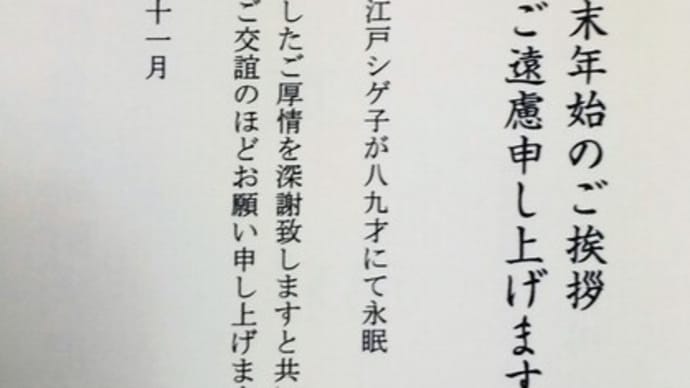 末年始のご挨拶
ご遠慮申し上げます
江戸シゲ子が八九才にて永眠
したご厚情を深謝致しますと共
ご交誼のほどお願い申し上げま
十一月